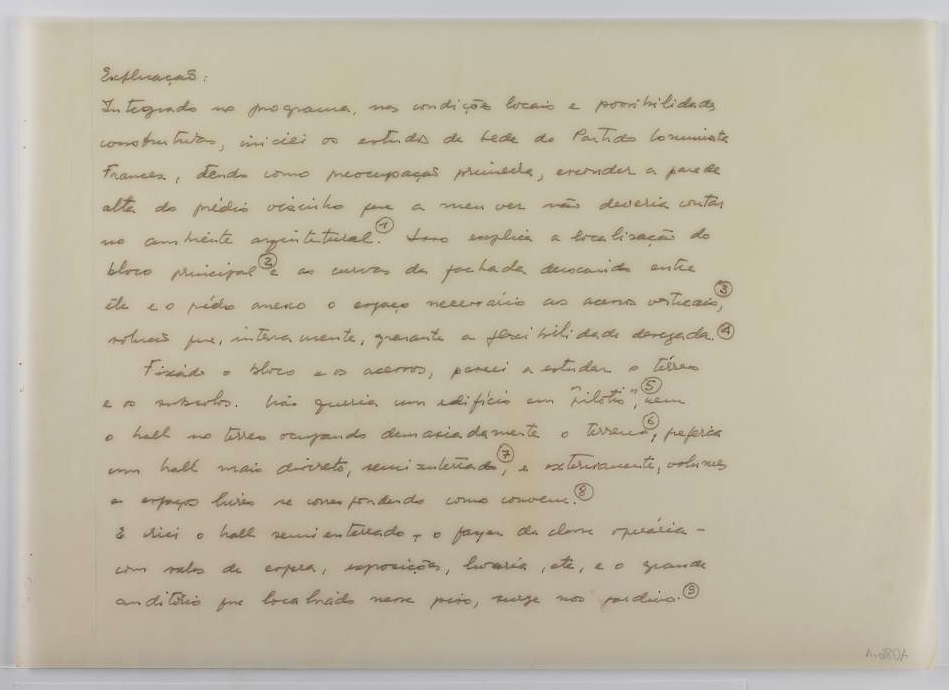 Explicação:
Integrado no programa, nas condições locais e possibilidades
construtivas, iniciei os estudos da Sede do Partido Comunista
Frances, tendo como preocupação primeira, esconder a parede
alta do prédio vizinho que a meu ver não deveria contar
no ambiente arquitetural. ① Isso explica a localização do
bloco principal ② e as curvas da fachada deslocando entre
ele e o prédio anexo o espaço necessário aos acessos verticais, ③
solução que, internamente, garante a flexibilidade desejada. ④
Fixado o bloco e os acessos, passei a estudar o térreo
e os subsolos. Não queria um edifício em "pilotis", ⑤ nem
o hall no térreo ocupando demasiadamente o terreno, ⑥ preferia
um hall mais discreto, semienterrado, ⑦ e externamente, volumes
e espaços livres se correspondendo como convem. ⑧
E criei o hall semienterrado - o foyer da classe operária -
com salas de espera, exposições, livraria, etc, e o grande
auditório que localizado nesse piso, surge nos jardins. ⑨